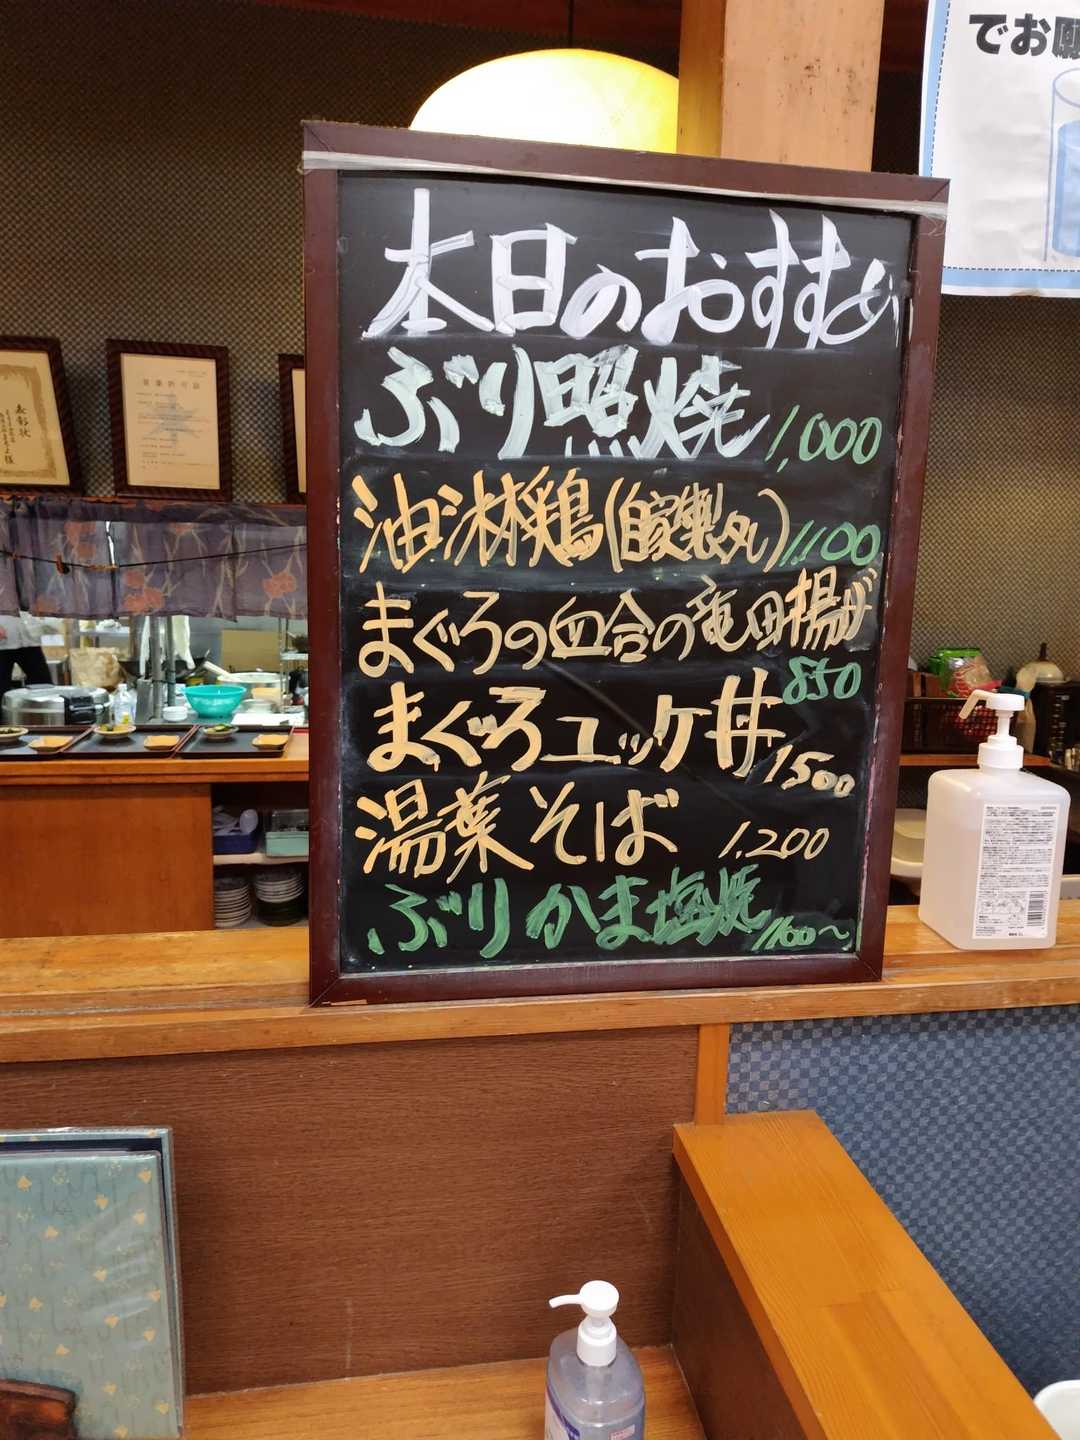 でお願
本日のおすすめ
ぶり照焼 1,000
油淋鶏(自家製タレ) 1100
まぐろの血合の竜田揚げ
850
まぐろユッケ丼 1500
湯葉そば 1.200
ぶりかま塩焼 1100~
表彰状
営業許可証